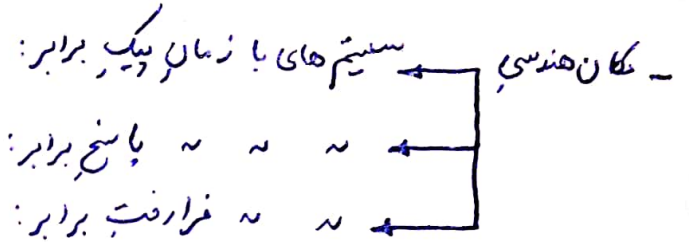 - مکان هندسیِ سیستم های با زمانِ پیکِ برابر:
〃 〃 〃 پاسخِ برابر:
〃 〃 فرارفتِ برابر: